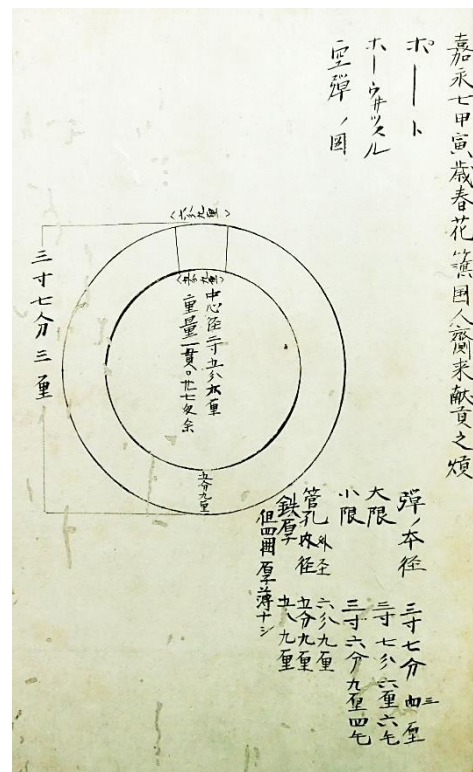 嘉永七甲寅歳春花籏国人齎来献貢之煩
ポート
ホーウ井ッスル
空弾ノ図
〈六分九厘〉
〈五分九厘〉
中心径二寸五分五厘
重量一貫〇廿七匁余
三寸七分三厘
五分九厘
弾ノ本径 三寸七分四三厘
大限 三寸七分六厘六毛
小限 三寸六分九厘四毛
管孔外径 六分九厘
内径 五分九厘
鉄厚 五分九厘
但四囲厚薄ナシ